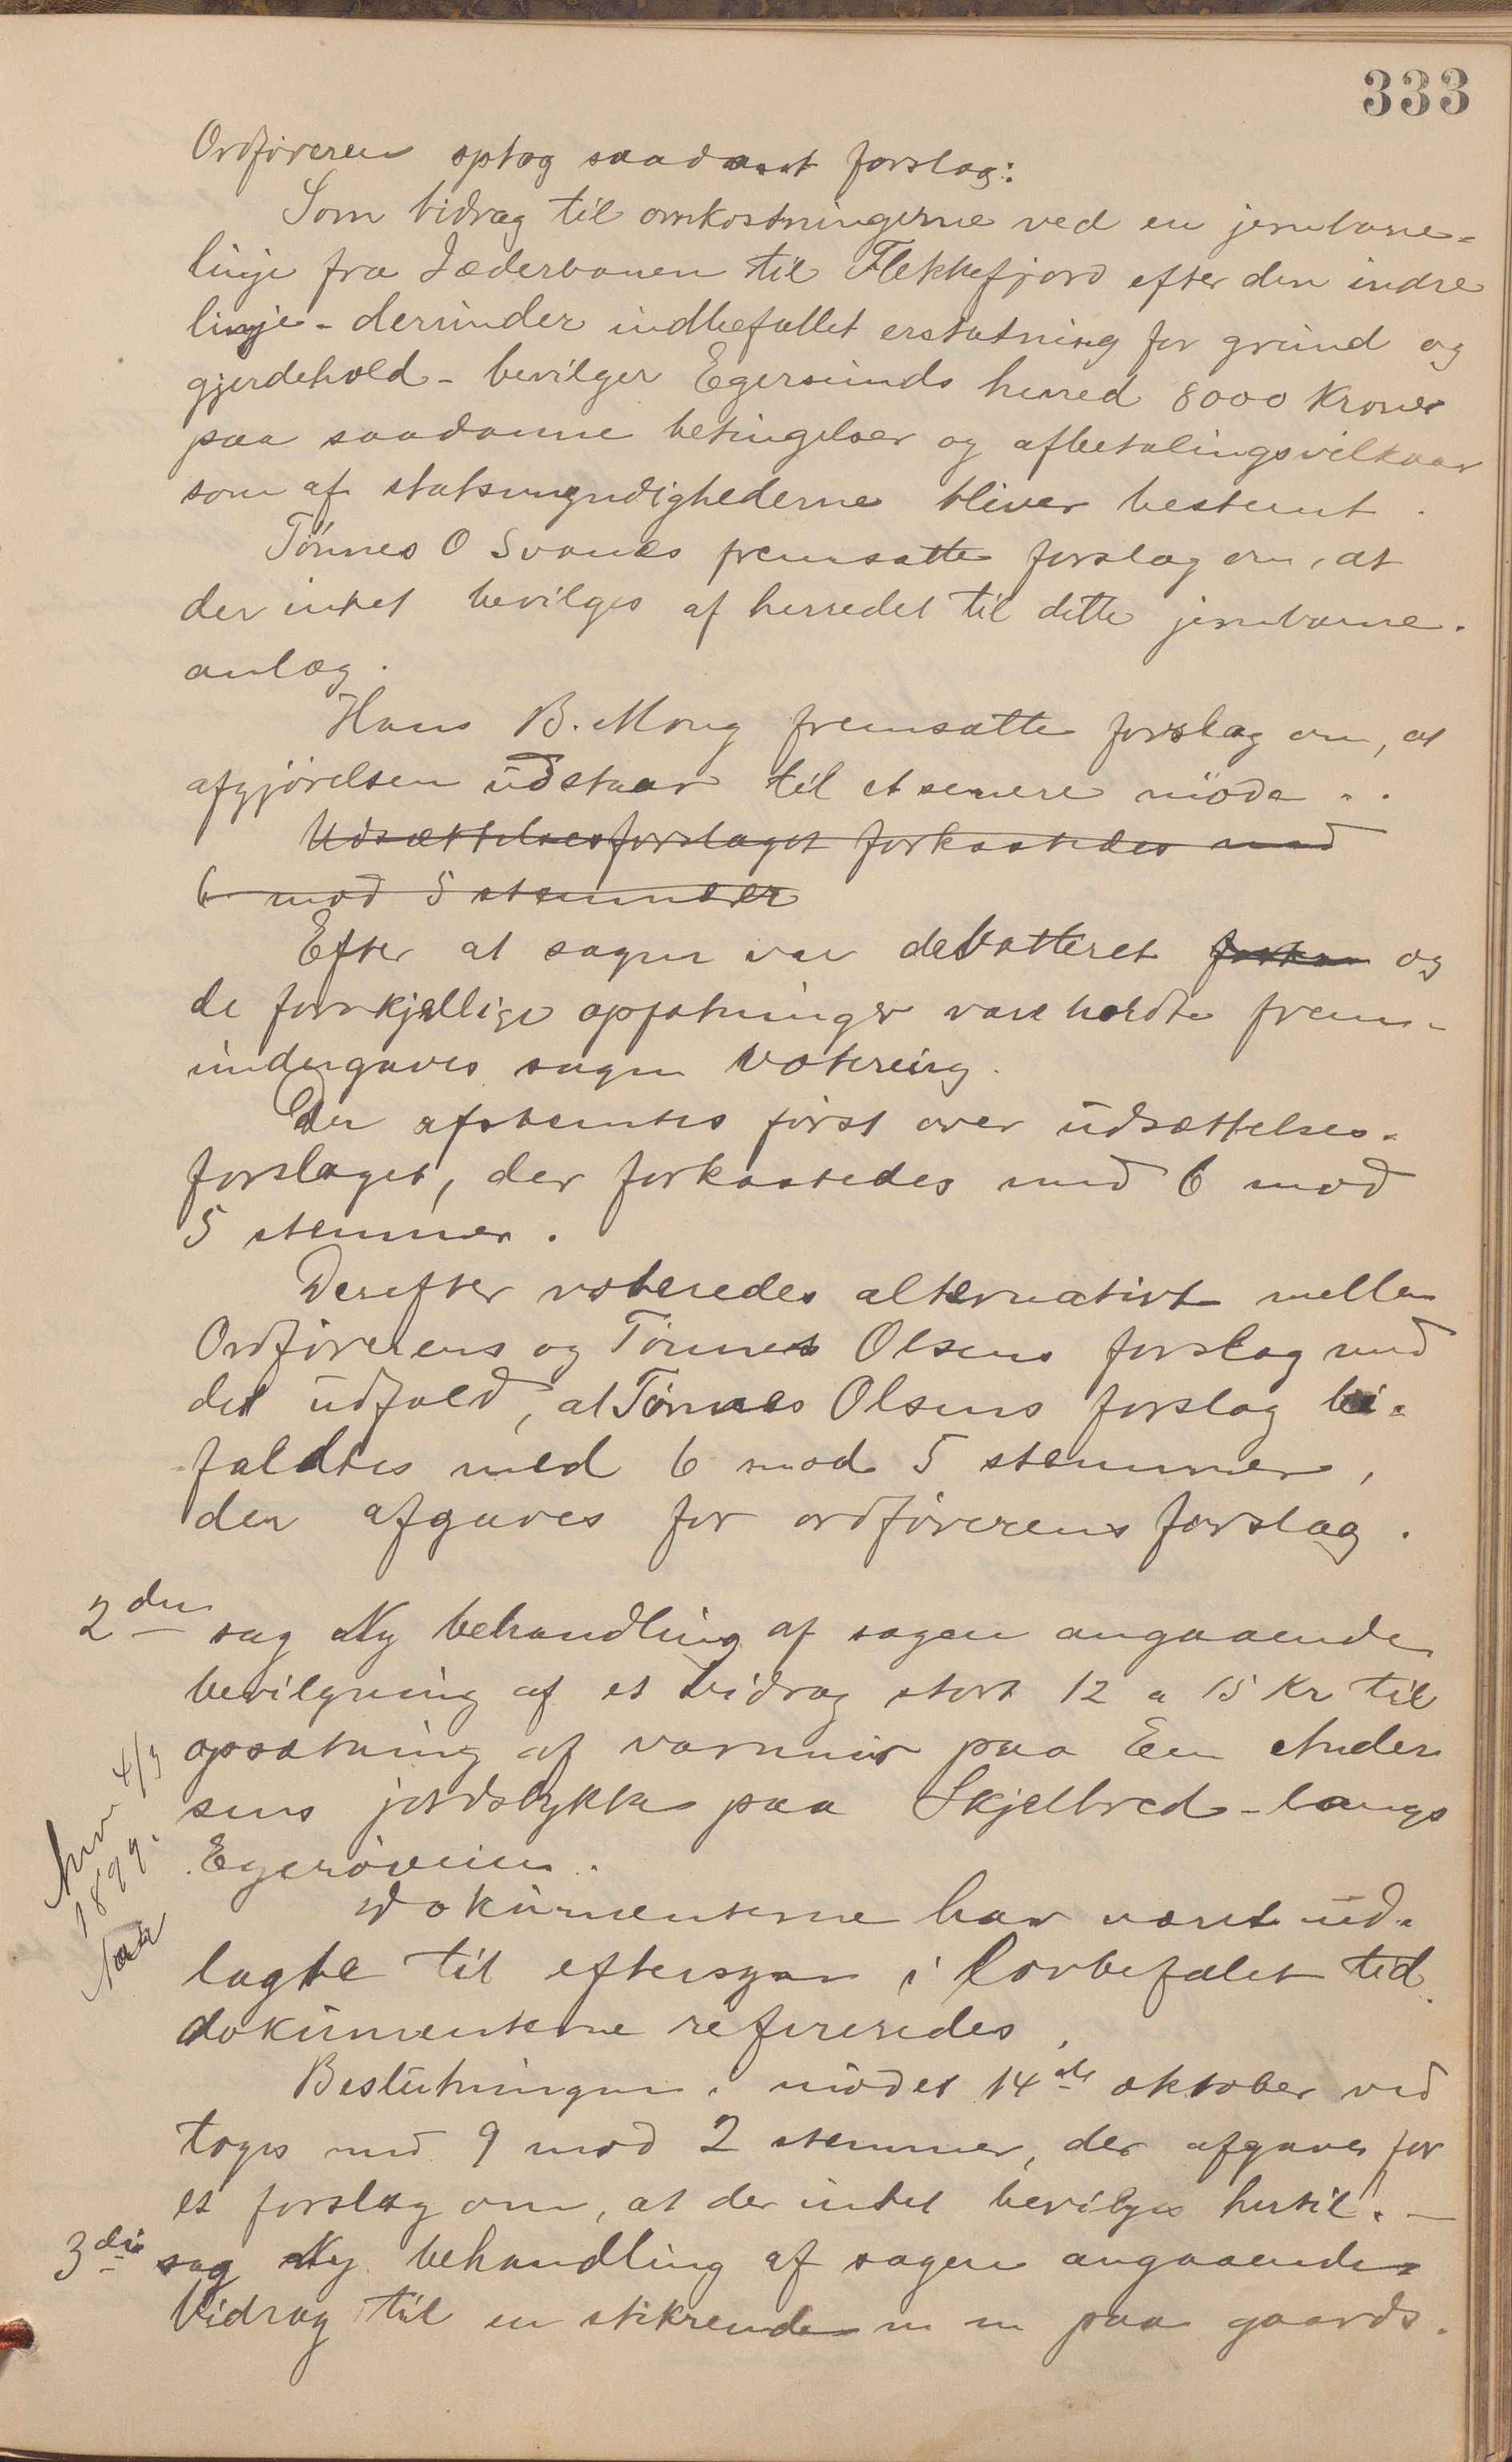 333
Ordføreren optog saadant forslag:
Som bidrag til omkostningerne ved en jernbane-
linje fra Jæderbanen til Flekkefjord efter den indre
linje - derunder indbefattet erstatning for grund og
gjerdehold - bevilger Egersunds herred 8000 kroner
paa saadanne betingelser og afbetalingsvilkaar
som af statsmyndighederne bliver bestemt.
Tønnes O Svanes fremsatte forslag om, at
der intet bevilges af herredet til dette jernbane-
anlæg.
Hans B. Mong fremsatte forslag om, at
afgjørelsen udstaar til et senere møde.
Udsættelsesforslaget forkastedes med
6 mod 5 stemmer
Efter at sagen var debatteret og
de forskjellige opfatninger vare holdte frem-
undergaves sagen votering.
Der afstemtes først over udsættelses-
forslaget, der forkastedes med 6 mod
5 stemmer.
Derefter voteredes alternativt mellem
Ordførerens og Tønnes Olsens forslag med
det udfald, at Tønnes Olsens forslag bi-
faldtes med 6 mod 5 stemmer,
der afgaves for ordførerens forslag.
2den sag Ny behandling af sagen angaaende
bevilgning af et bidrag stort 12 a 15 kr til
opsætning af varmur paa Een Ander
sens jordstykke paa Skjelbred - langs
Egerøveien.
4/3
1899.
Dokumenterne har været ud-
lagte til eftersyn i lovbefalet tid.
dokumenterne refereredes,
Beslutningen i mødet 14de oktober ved
toges med 9 mod 2 stemmer, der afgaves for
et forslag om, at der intet bevilges hertil. -
3die sag Ny behandling af sagen angaaende
bidrag til en stikrende m m paa gaards-